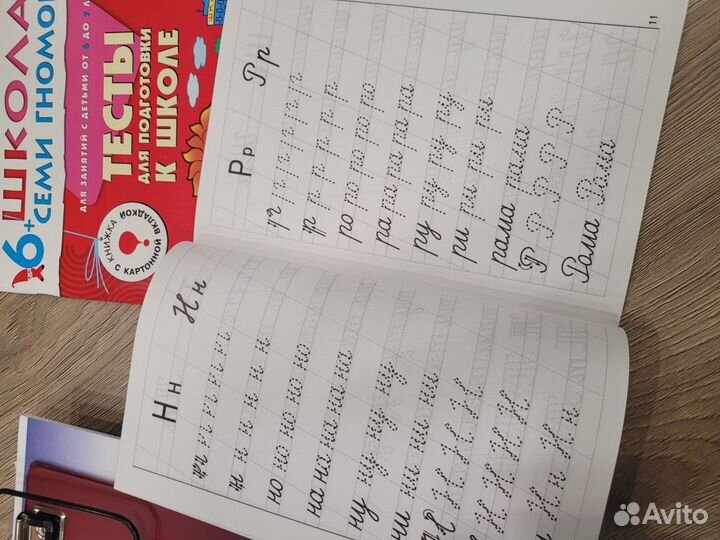 ШКОЛА
СЕМИ ГНОМОВ
6+
ДЛЯ ЗАНЯТИЙ С ДЕТЬМИ ОТ 6 ДО 7
ТЕСТЫ
ДЛЯ ПОДГОТОВКИ
К ШКОЛЕ
КНИЖКА
С КАРТОННОЙ ВКЛАДКОЙ
Н н Н н
н н н н н
но но но но
на на на на на
ну ну ну ну
ни ни ни
Н Н Н Н Н
Н Н Н Н
Р р Р р
р р р р р р
ро ро ро ро
ра ра ра ра ра
ру ру ру ру
ри ри ри ри
рама рама
Р Р Р Р Р
Рома Рома
11
Avito